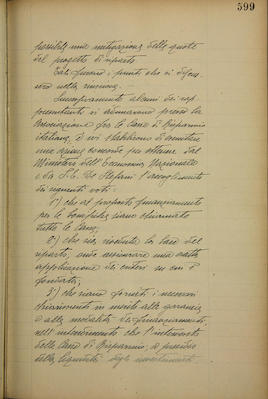 599
possibile una mitigazione delle quote
del progetto di riparto.
Tali furono i punti che si discus-
sero nella riunione.
Successivamente alcuni dei rap-
presentanti si adunarono presso la
Associazione fra le Casse di Risparmio
italiane, e ivi stabilirono di
una azione concorde per ottenere dal
Ministero dell'Economia Nazionale
e da S.E. De Stefani l'accoglimento
dei seguenti voti:
1°) che al proposto finanziamento
per le bonifiche siano chiamate
tutte le Casse;
2°) che sia riveduta la base del
riparto, onde assicurare una esatta
applicazione dei criteri su cui è
fondata;
3°) che siano forniti i necessari
chiarimenti in merito alle garanzie
e alle modalità dei finanziamenti,
nell'intendimento che l'intervento
delle Casse di Risparmio, a presidio
della liquidità degli investimenti